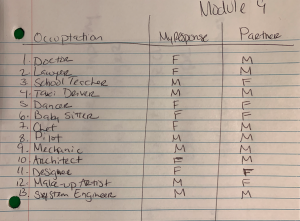 Module 4
Occuptation My Response Partner
1. Doctor F M
2. Lawyer F M
3. School Teacher M F
4. Taxi Driver M M
5. Dancer F F
6. Baby Sitter F F
7. Chef F M
8. Pilot M M
9. Mechanic M M
10. Architect F M
11. Designer F F
12. Make-up Artist M F
13. System Engineer M M